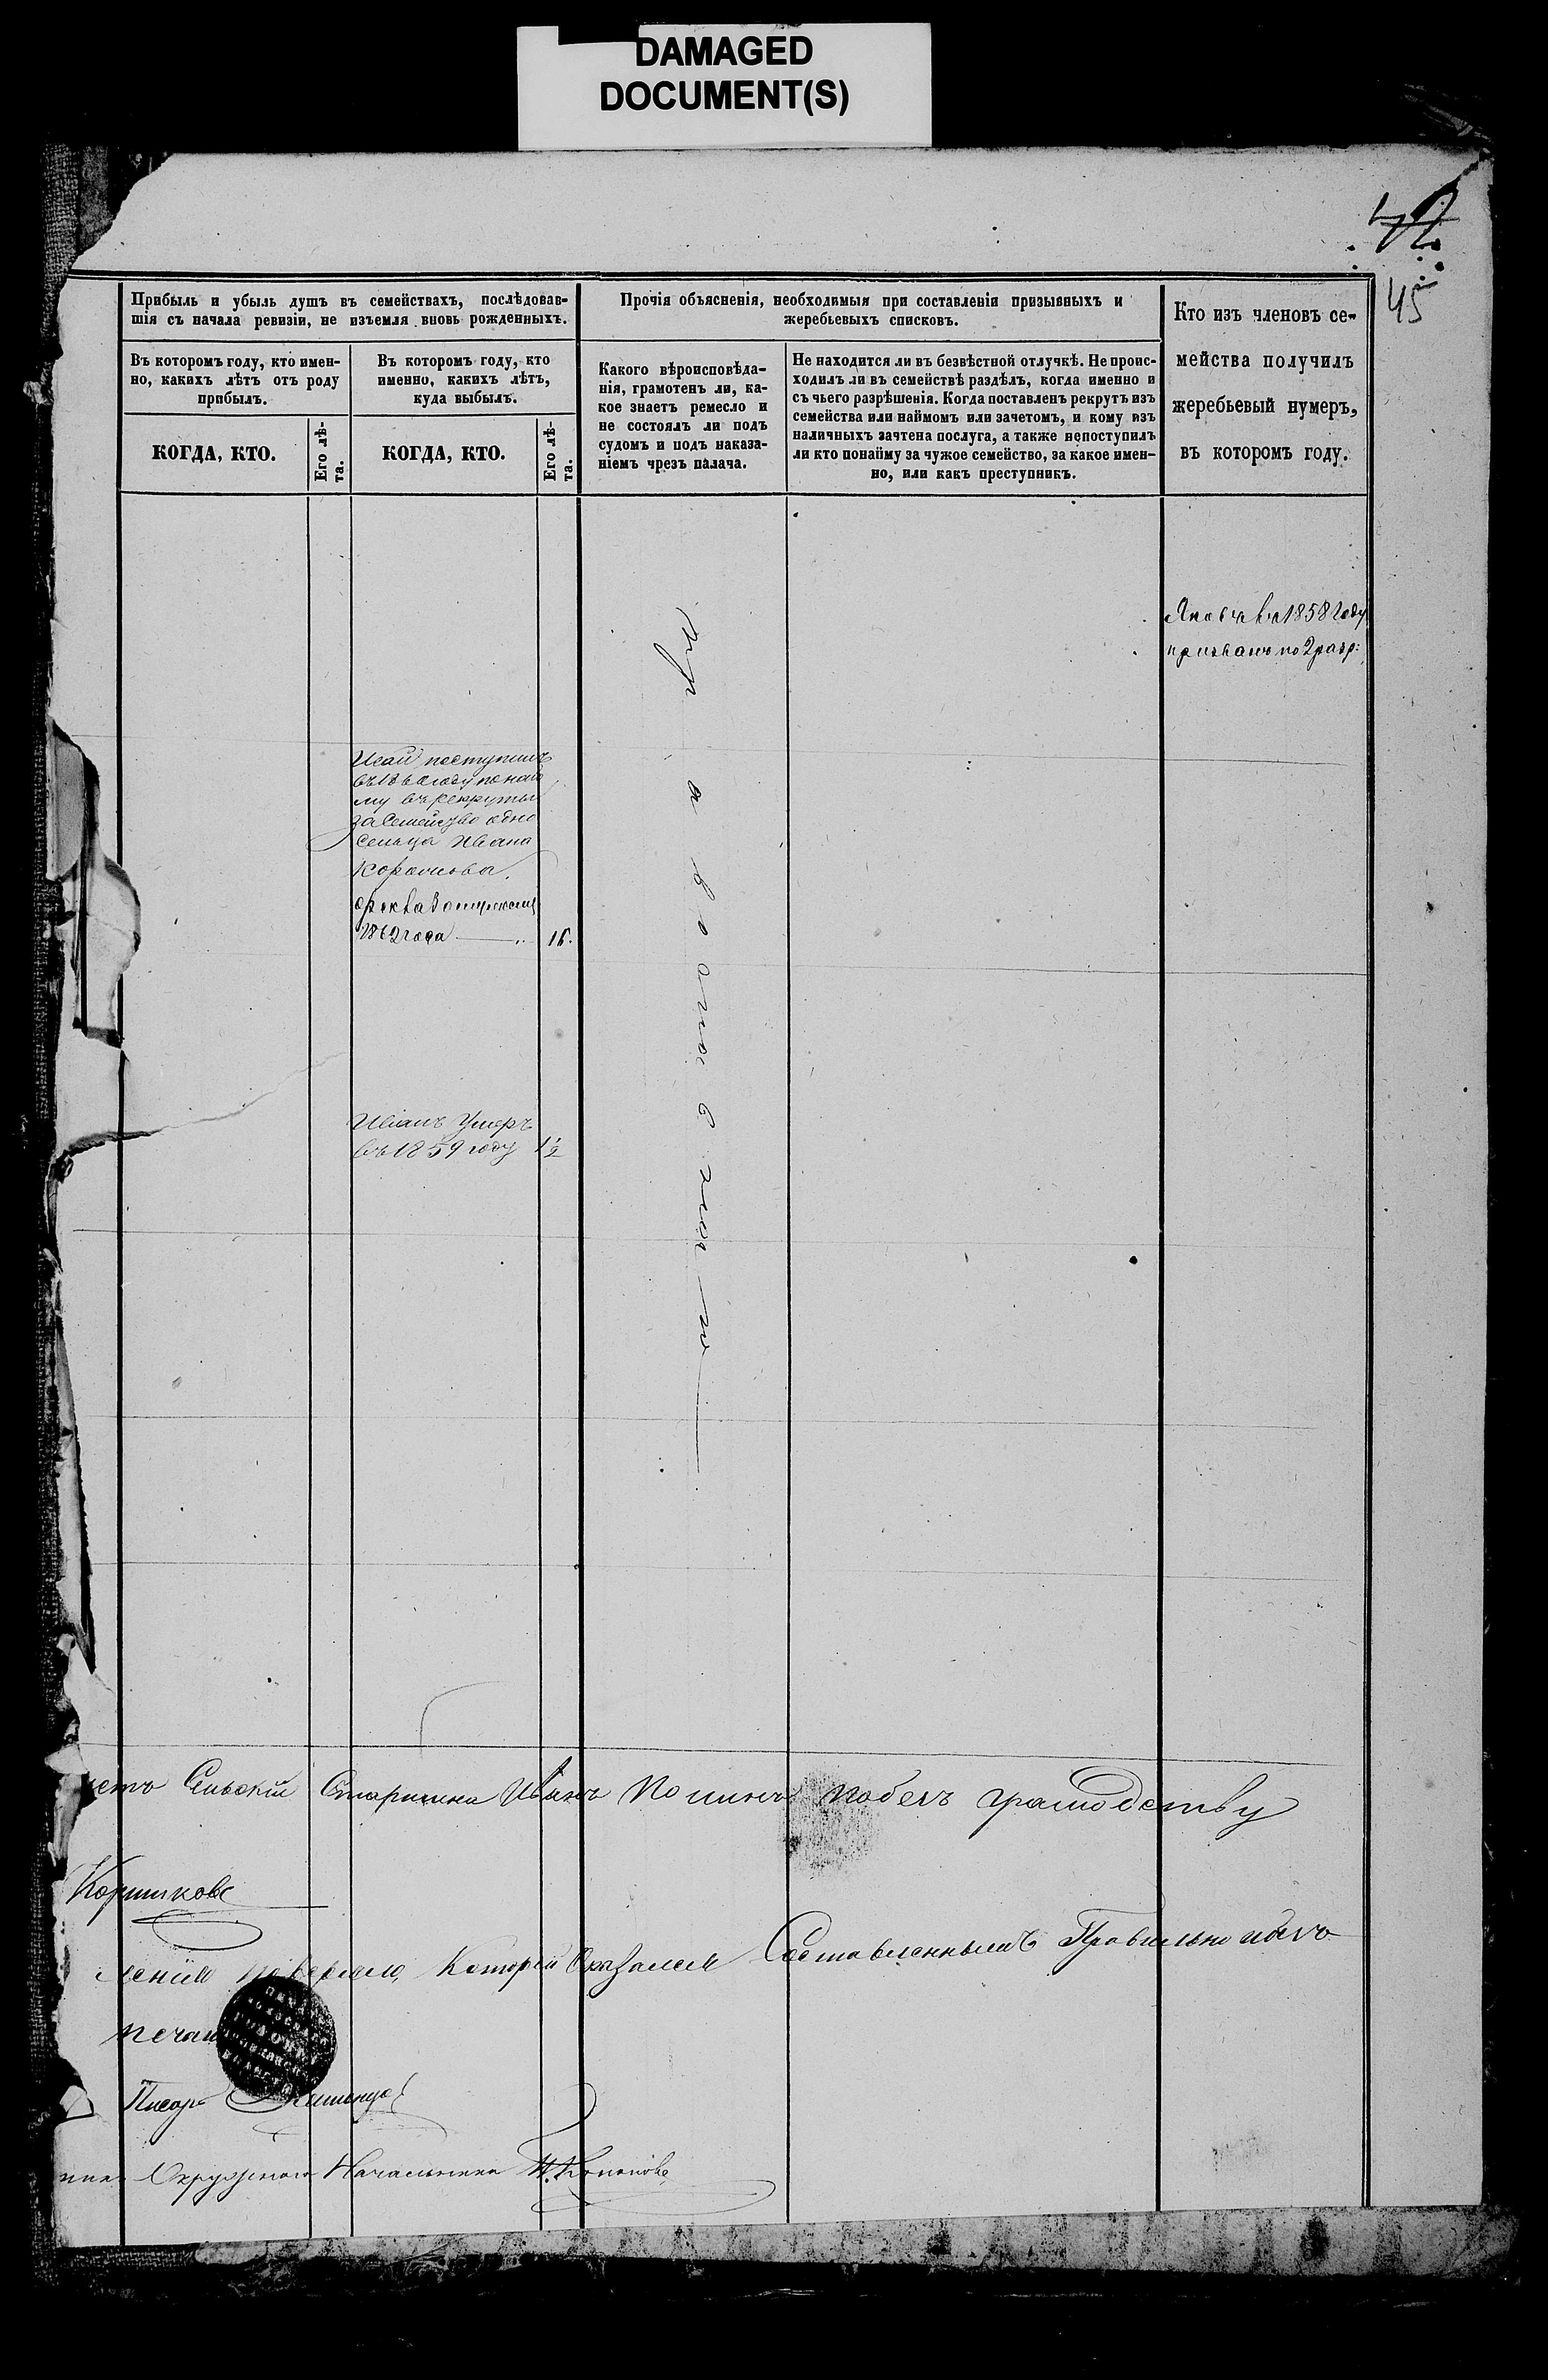 DAMAGED
DOCUMENT(S)
45
Прибыль и убыль душъ въ семействахъ, послѣдовав-
шія съ начала ревизіи, не изъемля вновь рожденныхъ.
Прочія объясненія, необходимыя при составленіи призывныхъ и
жеребьевыхъ списковъ.
Кто изъ членовъ се-
мейства получилъ
жеребьевый нумеръ,
въ которомъ году.
Въ которомъ году, кто имен-
но, какихъ лѣтъ отъ роду
прибылъ.
Въ которомъ году, кто
именно, какихъ лѣтъ,
куда выбылъ.
Какого вѣроисповѣда-
нія, грамотенъ ли, ка-
кое знаетъ ремесло и
не состоялъ ли подъ
судомъ и подъ наказа-
ніемъ чрезъ палача.
Не находится ли въ безвѣстной отлучкѣ. Не проис-
ходилъ ли въ семействѣ раздѣлъ, когда именно и
съ чьего разрѣшенія. Когда поставленъ рекрутъ изъ
семейства или наймомъ или зачетомъ, и кому изъ
наличныхъ зачтена послуга, а также непоступилъ
ли кто понайму за чужое семейство, за какое имен-
но, или какъ преступникъ.
КОГДА, КТО.
Его лѣ-
та.
КОГДА, КТО.
Его лѣ-
та.
въ 1858 году
призванъ по 2 разр:
Исай поступилъ
году по най
му въ рекруты
за семейство одно
сельца Ивана
1862 года
16.
Иванъ умеръ
въ 1859 году 1½
Сельскій Старшина Иванъ
Коршиковъ
повѣрялъ, который оказался составленнымъ правильно
Писарь
Окружнаго Начальника